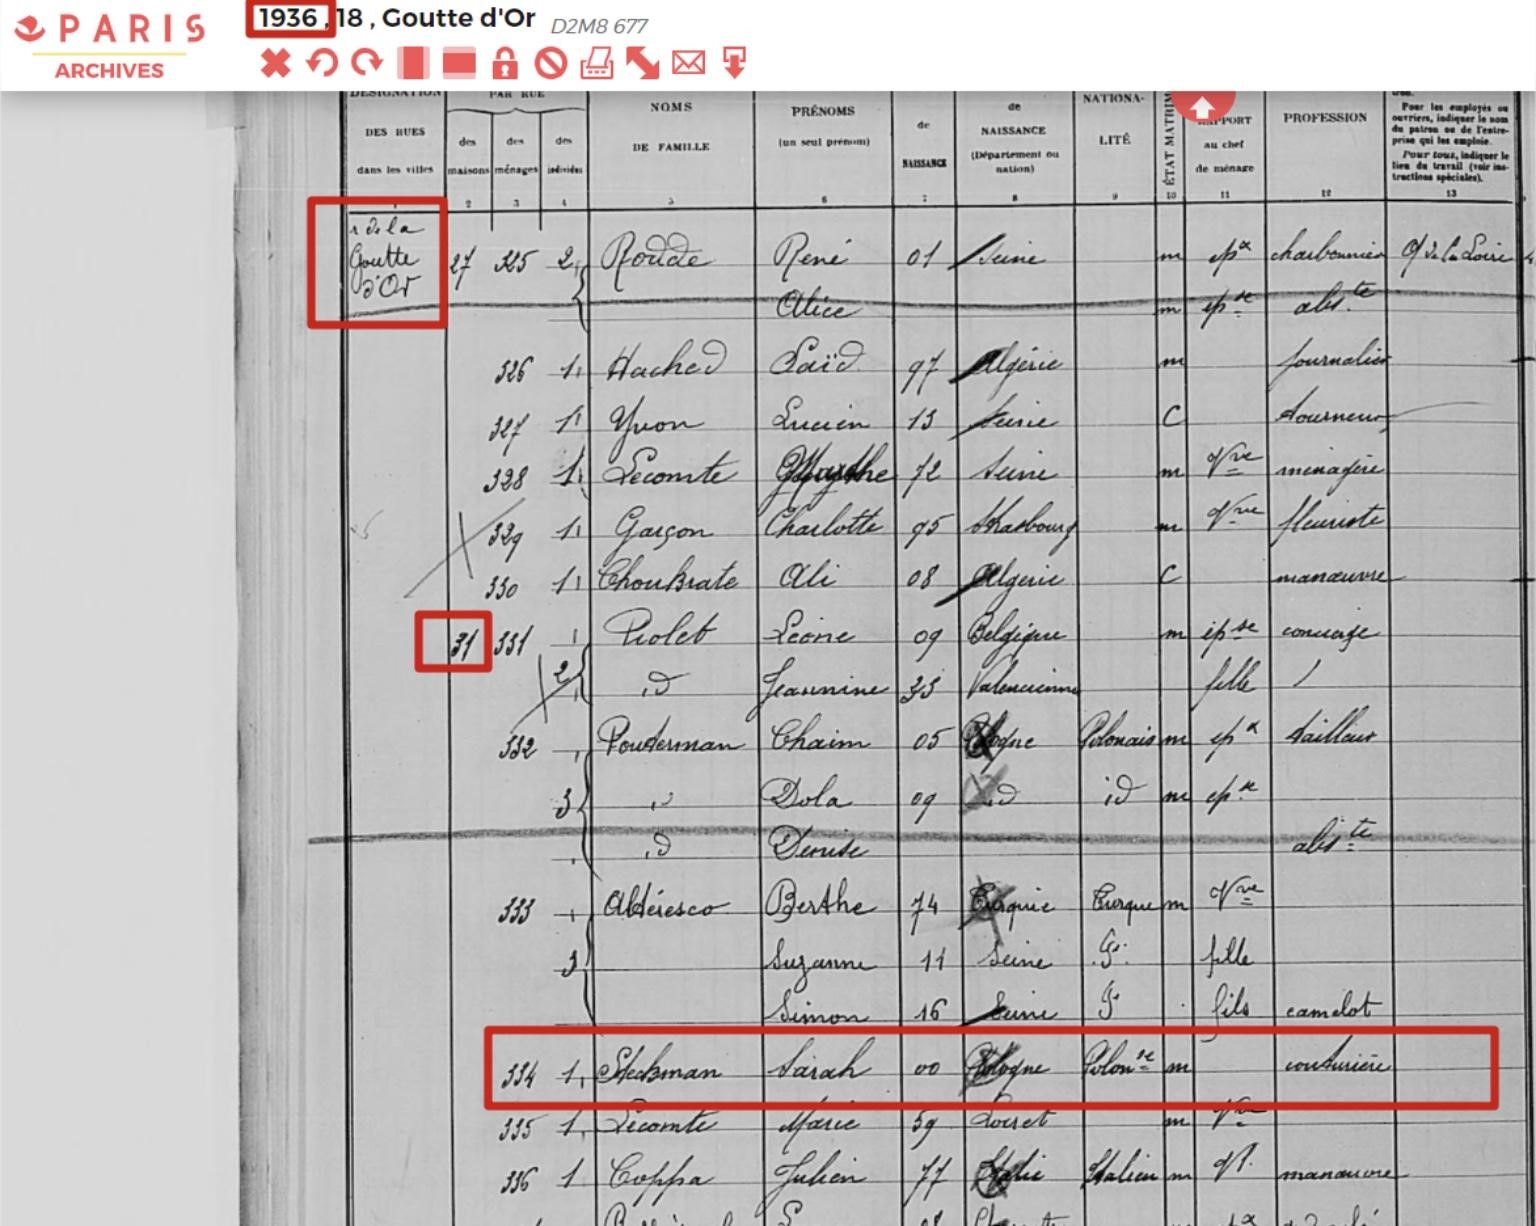 PARIS
ARCHIVES
1936 , 18 , Goutte d'Or D2M8 677
DÉSIGNATION
DES RUES
dans les villes
1
PAR RUE
des maisons
2
des ménages
3
des individus
4
NOMS
DE FAMILLE
5
PRÉNOMS
(un seul prénom)
6
de
NAISSANCE
7
de
NAISSANCE
(Département ou
nation)
8
NATIONA-
LITÉ
9
ÉTAT MATRIM
10
RAPPORT
au chef
de ménage
11
PROFESSION
12
Pour les employés ou
ouvriers, indiquer le nom
du patron ou de l'entre-
prise qui les emploie.
Pour tous, indiquer le
lieu du travail (voir ins-
tructions spéciales).
13
r de la
Goutte
d'Or
27 325 2 Rodde René 01 Seine m ep x charbonnier
Alice m ep se abs te
326 1 Hached Saïd 97 Algérie m journalier
327 1 Yvon Lucien 13 Seine C tourneur
328 1 Lecomte 72 Seine m Vve ménagère
329 1 Garçon Charlotte 95 Strasbourg m Vve fleuriste
330 1 Choubrate Ali 08 Algérie C manœuvre
31 331 Piolet Léone 09 Belgique m ep se concierge
2 id Jeannine 35 Valencienne fille /
332 Pouderman Chaim 05 Pologne Polonais m ep x tailleur
3 id Dola 09 id id m ep se
id Denise abs te
333 Aldéresco Berthe 74 Turquie Turque m Vve
3 Suzanne 11 Seine fille
Simon 16 Seine fils camelot
334 1 Steckman Sarah 00 Pologne Polon se m couturière
335 1 Lecomte Marie 59 Loiret m Vve
336 1 Coppa Julien 77 Italie Italien m manœuvre